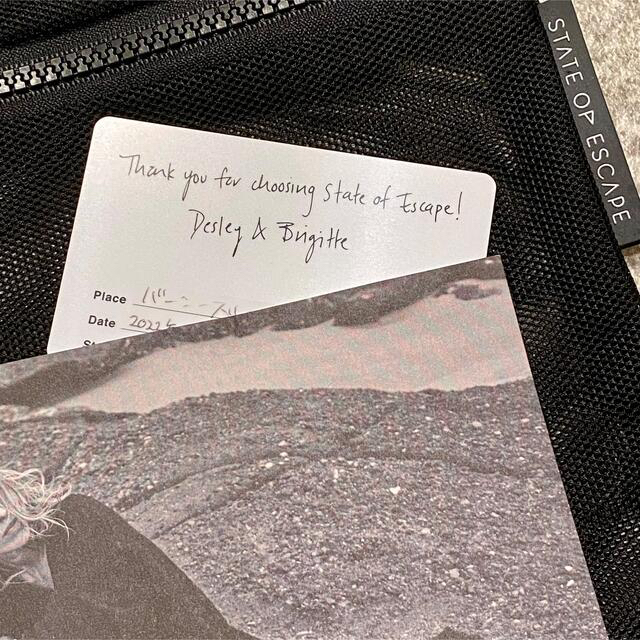 STATE OF ESCAPE
Thank you for choosing State of Escape!
Desley & Brigitte
Place バーニーズ
Date 2022